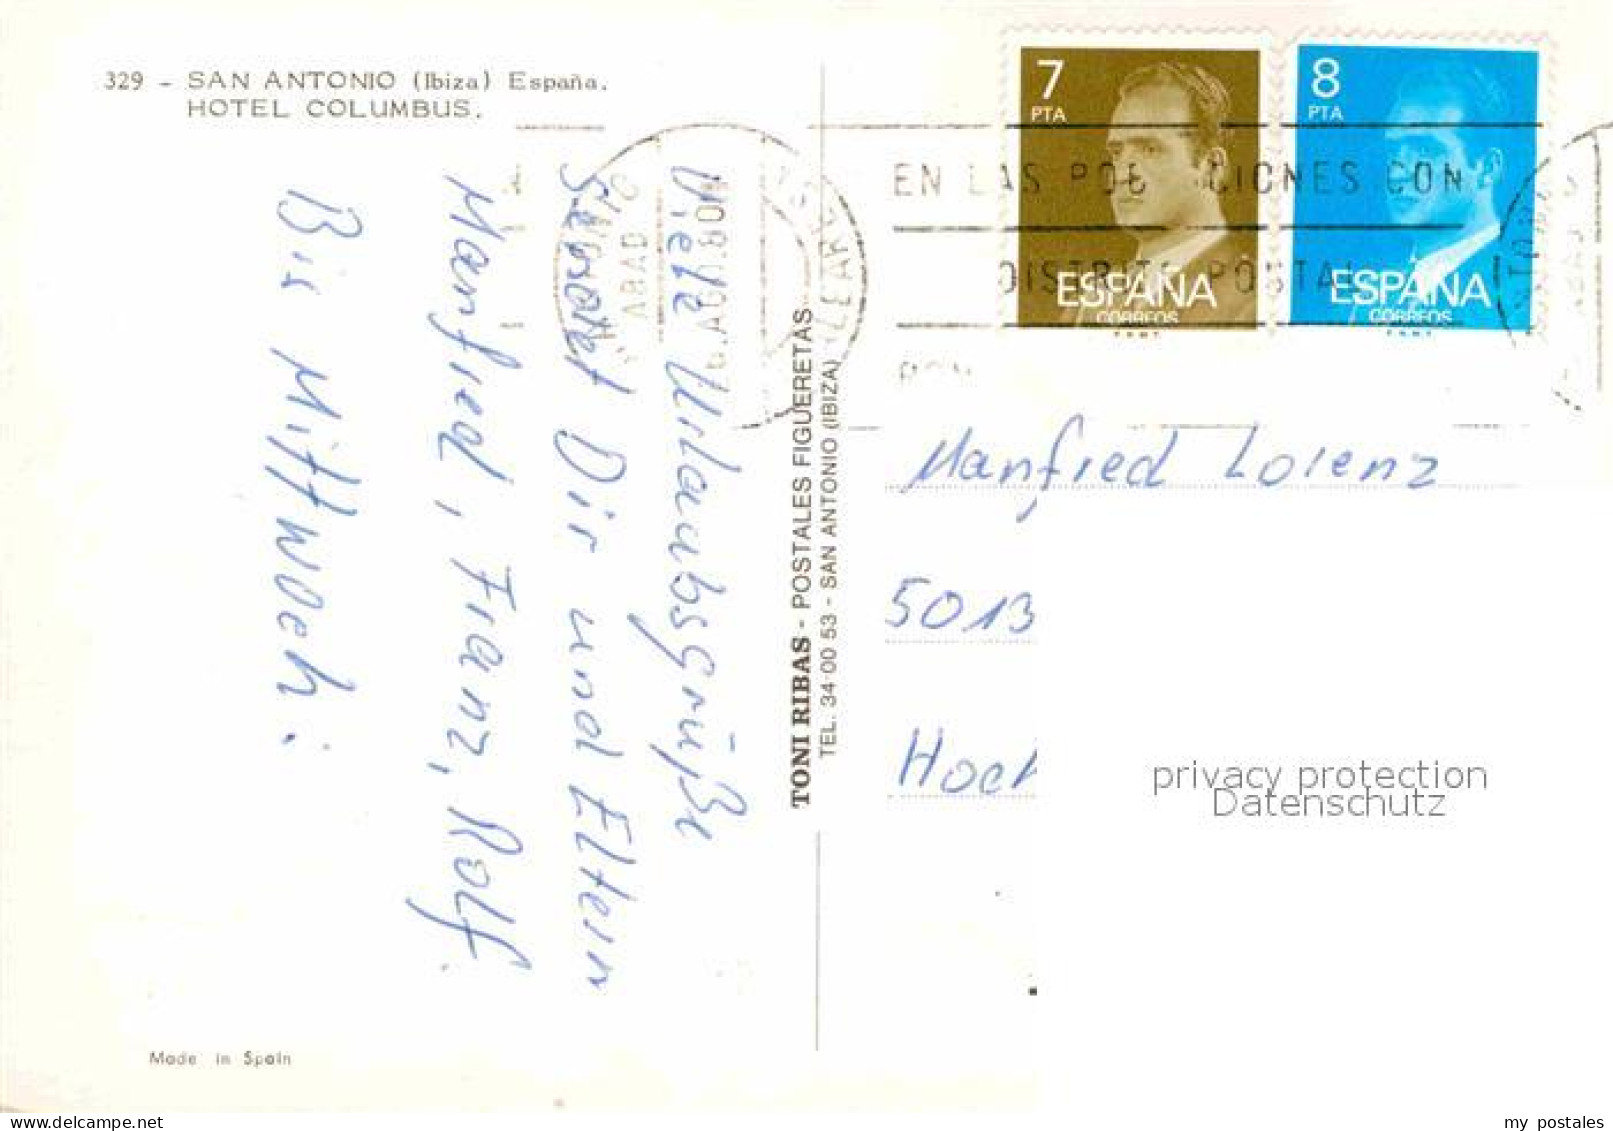 329 - SAN ANTONIO (Ibiza) España.
HOTEL COLUMBUS.
Viele Urlaubsgrüße
sendet Dir und Eltern
Manfred, Franz, Rolf.
Bis Mittwoch!
Made in Spain
TONI RIBAS - POSTALES FIGUERETAS
TEL. 34 00 53 - SAN ANTONIO (IBIZA)
7
PTA
ESPAÑA
CORREOS
8
PTA
ESPAÑA
CORREOS
EN LAS POB CIONES CON
DISTRITO POSTAL
Manfred Lorenz
5013
Hoch
privacy protection
Datenschutz
my postales
www.delcampe.net